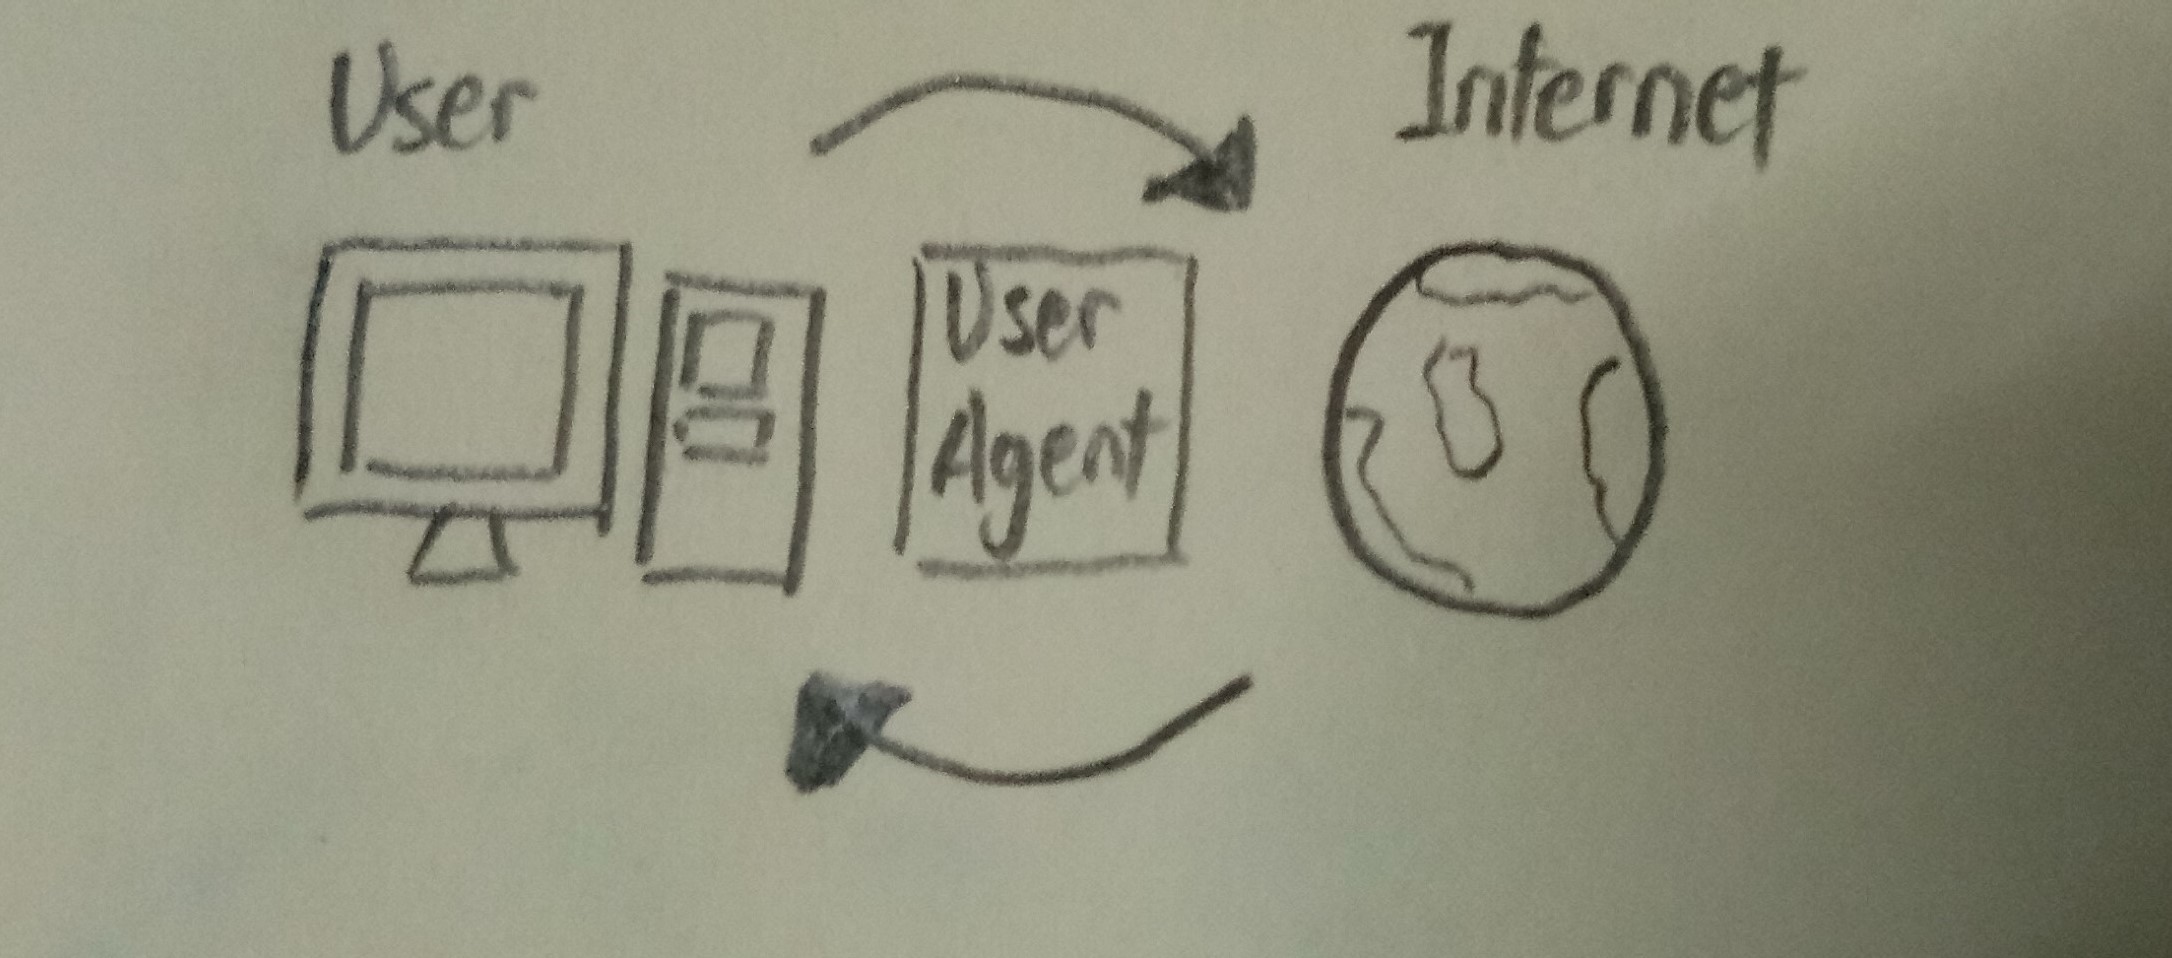 User
Internet
User
Agent